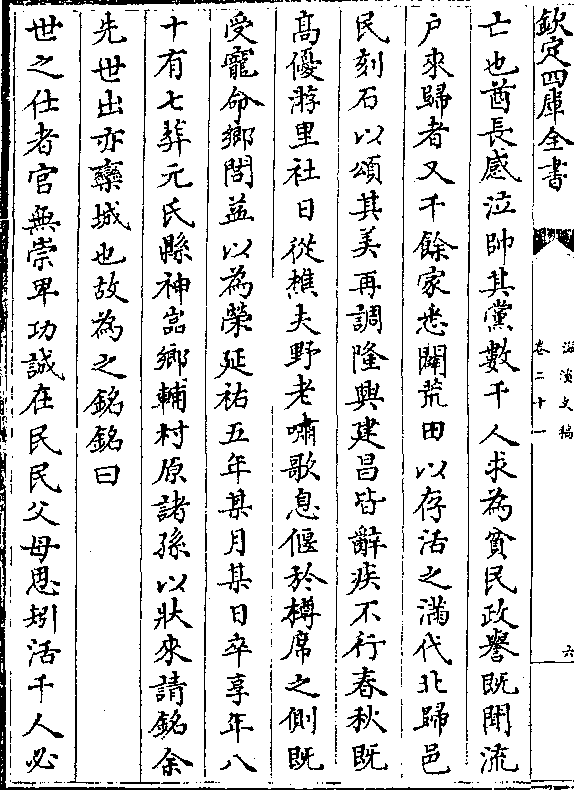 欽定四庫全書
滋溪文稿
卷二十一
六
亡也酋長感泣帥其黨數千人求為貧民政譽既聞流
户來歸者又千餘家悉闢荒田以存活之滿代北歸邑
民刻石以頌其美再調隆興建昌皆辭疾不行春秋既
髙優游里社日從樵夫野老嘯歌息偃於樽席之側既
受寵命鄉閭益以為榮延祐五年某月某日卒享年八
十有七葬元氏縣神嵓鄉輔村原諸孫以狀來請銘余
先世出亦欒城也故為之銘銘曰
世之仕者官無崇卑功誠在民民父母思矧活千人必